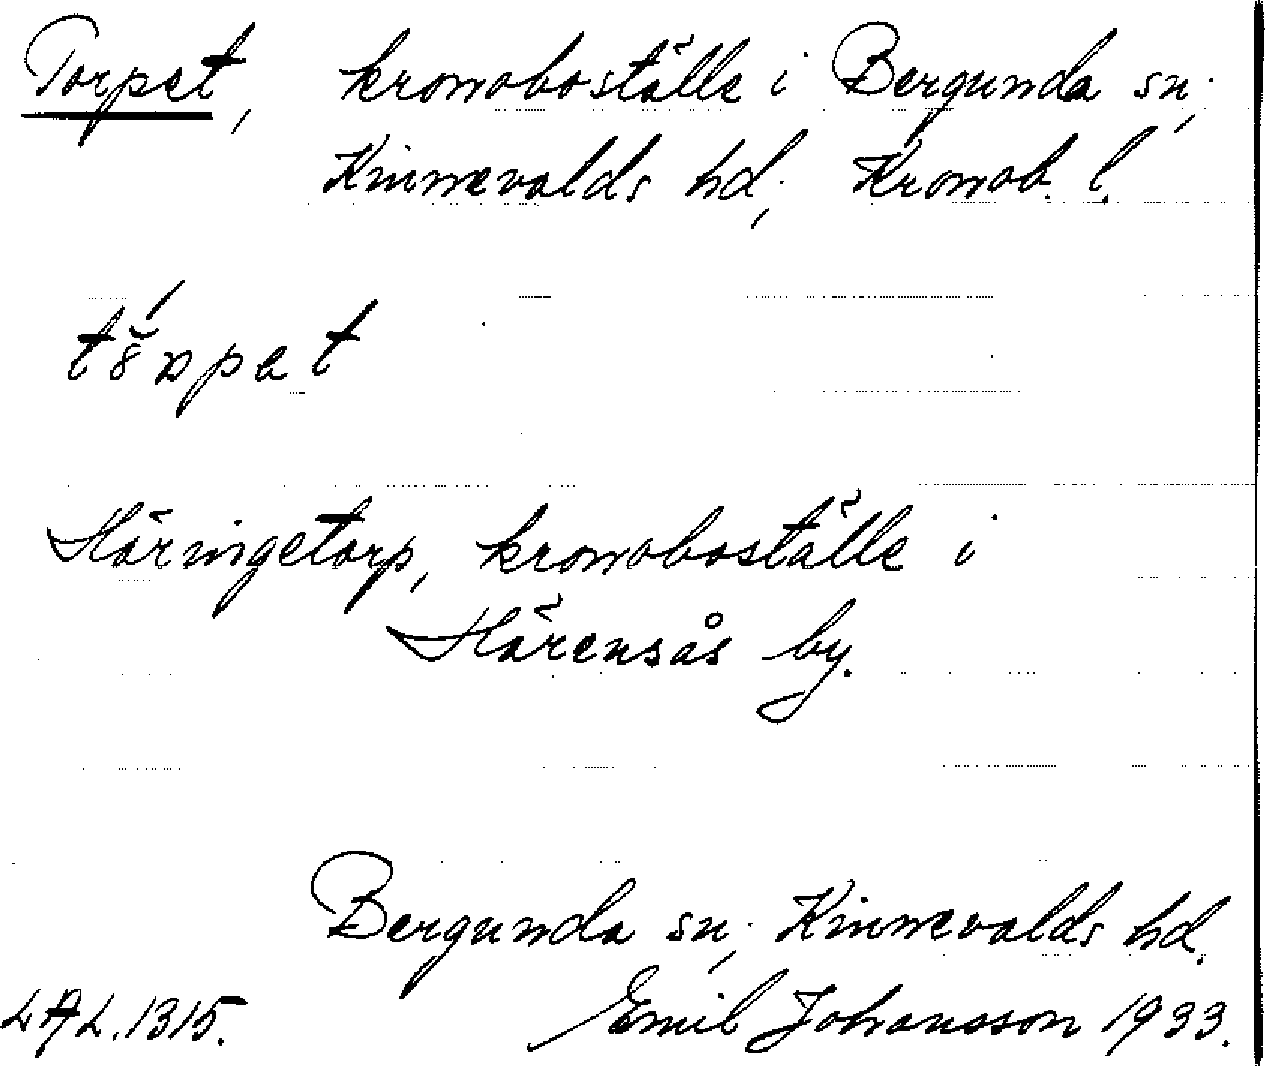 Torpet, kronoboställe i Bergunda sn,
Kinnevalds hd, Kronob. l.
Häringetorp, kronoboställe i
Härensås by.
Bergunda sn, Kinnevalds hd.
LAL. 1315. Emil Johansson 1933.